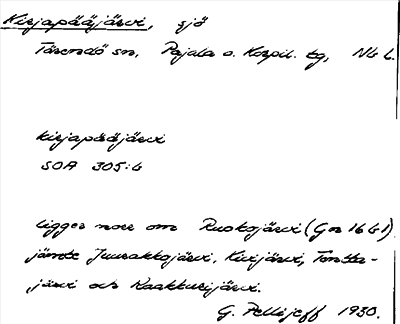 Kirjapääjärvi, sjö
Tärendö sn, Pajala o. Korpil. tg, Nb l.
Kirjapääjärvi
SOA 305:6
ligger norr om Ruokojärvi (Gn 16 G 1)
jämte Juurakkojärvi, Kivijärvi, Tontto-
järvi och Kaakkurijärvi.
G. Pellijeff 1930.